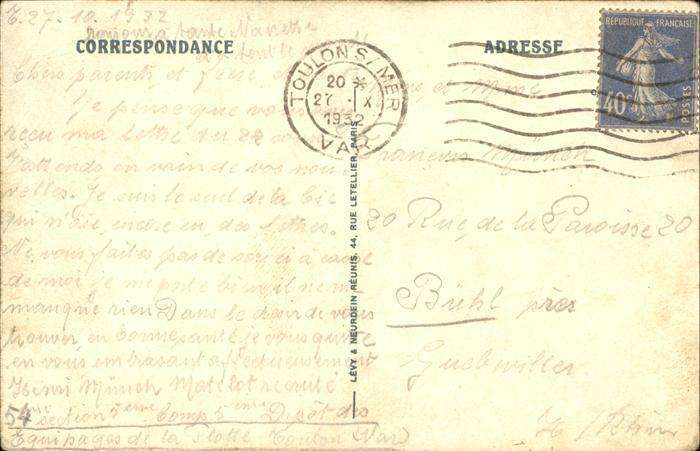 T. 27. 10. 1932
bonjour à tante Nanette
et tout le
CORRESPONDANCE
Chers parents, et frère,
Je pense que vous
reçu ma lettre du 22
J'attends en vain de vos nou
velles. Je suis le seul de la Cie
qui n'aie, encore eu, des lettres.
Ne, vous faites pas de souci à cause
de moi, je me porte bien il ne me
manque rien Dans le désir de vous
trouver, en bonne santé, je vous quitte
en vous embrasant affectueusement
Henri Münch Matelot recrute
54me section 5ème Comp 5ème Dépôt des
Equipages de la Flotte Toulon (Var)
LÉVY & NEURDEIN RÉUNIS, 44, RUE LETELLIER, PARIS
TOULON S/MER
20
27 X
1932
VAR
ADRESSE
RÉPUBLIQUE FRANÇAISE
40c
POSTES
et Mme
Francois Münch
20 Rue, de la Paroisse 20
Bühl près
Guebwiller
H/Rhin